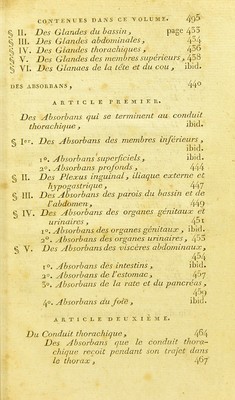 CONTENUES DANS CE VOLUME. 495
§ II. Des Glandes du bassin, page 433
§ III. Des Glandes abdominales, 434
§ IV. Des Glandes thorachiques, 436
§ V. Des Glandes des membres supérieurs, 438
§ VI. Des Glandes de la tête et du cou, ibid.
DES ABSORBANS, 440
ARTICLE PREMIER.
Des Absorbans qui se terminent au conduit
thorachique, ibid.
§ Ier. Des Absorbans des membres inférieurs,
ibid.
1º. Absorbans superficiels, ibid.
2º. Absorbans profonds, 444
§ II. Des Plexus inguinal, iliaque externe et
hypogastrique, 447
§ III. Des Absorbans des parois du bassin et de
l'abdomen, 449
§ IV. Des Absorbans des organes génitaux et
urinaires, 451
1º. Absorbans des organes génitaux, ibid.
2º. Absorbans des organes urinaires, 453
§ V. Des Absorbans des viscères abdominaux,
454
1º. Absorbans des intestins, ibid.
2º. Absorbans de l'estomac, 457
3º. Absorbans de la rate et du pancréas,
459
4º. Absorbans du foie, ibid.
ARTICLE DEUXIÈME.
Du Conduit thorachique, 464
Des Absorbans que le conduit thora-
chique reçoit pendant son trajet dans
le thorax, 467